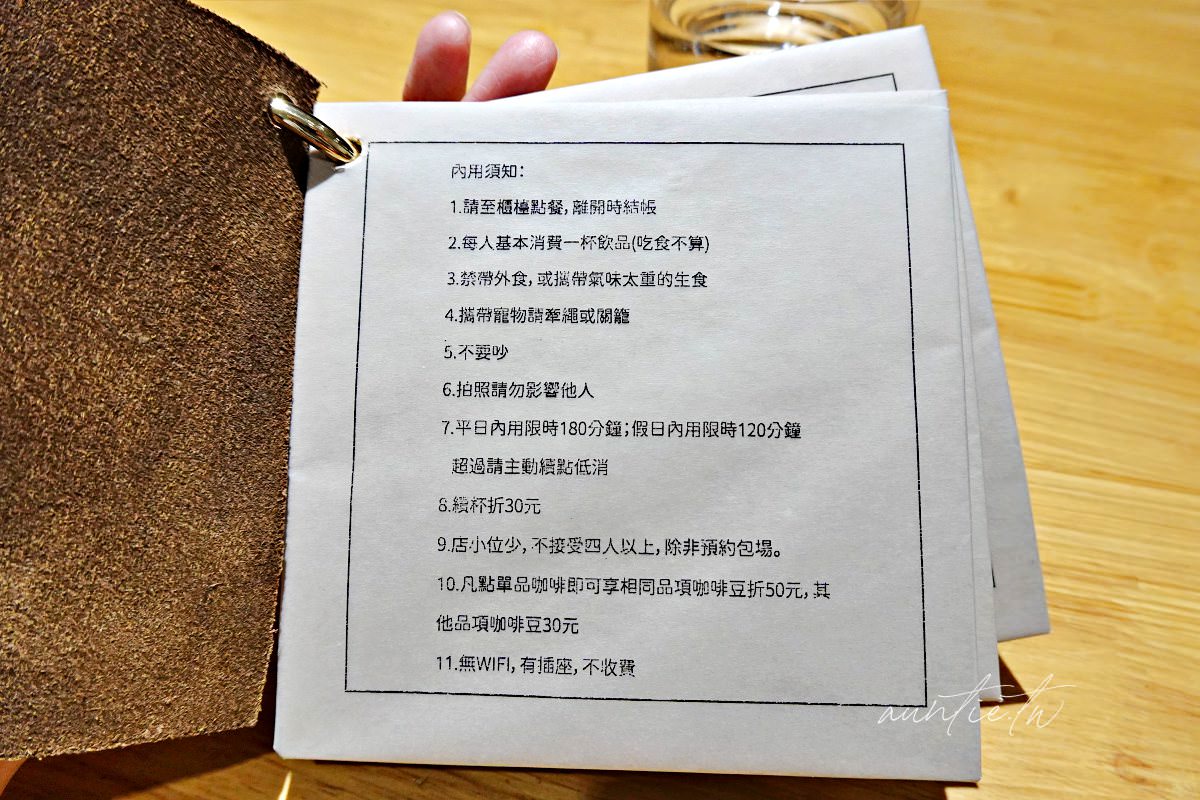 內用須知:
1.請至櫃檯點餐,離開時結帳
2.每人基本消費一杯飲品(吃食不算)
3.禁帶外食,或攜帶氣味太重的生食
4.攜帶寵物請牽繩或關籠
5.不要吵
6.拍照請勿影響他人
7.平日內用限時180分鐘;假日內用限時120分鐘
超過請主動續點低消
8.續杯折30元
9.店小位少,不接受四人以上,除非預約包場。
10.凡點單品咖啡即可享相同品項咖啡豆折50元,其
他品項咖啡豆30元
11.無WIFI,有插座,不收費
auntie.tw